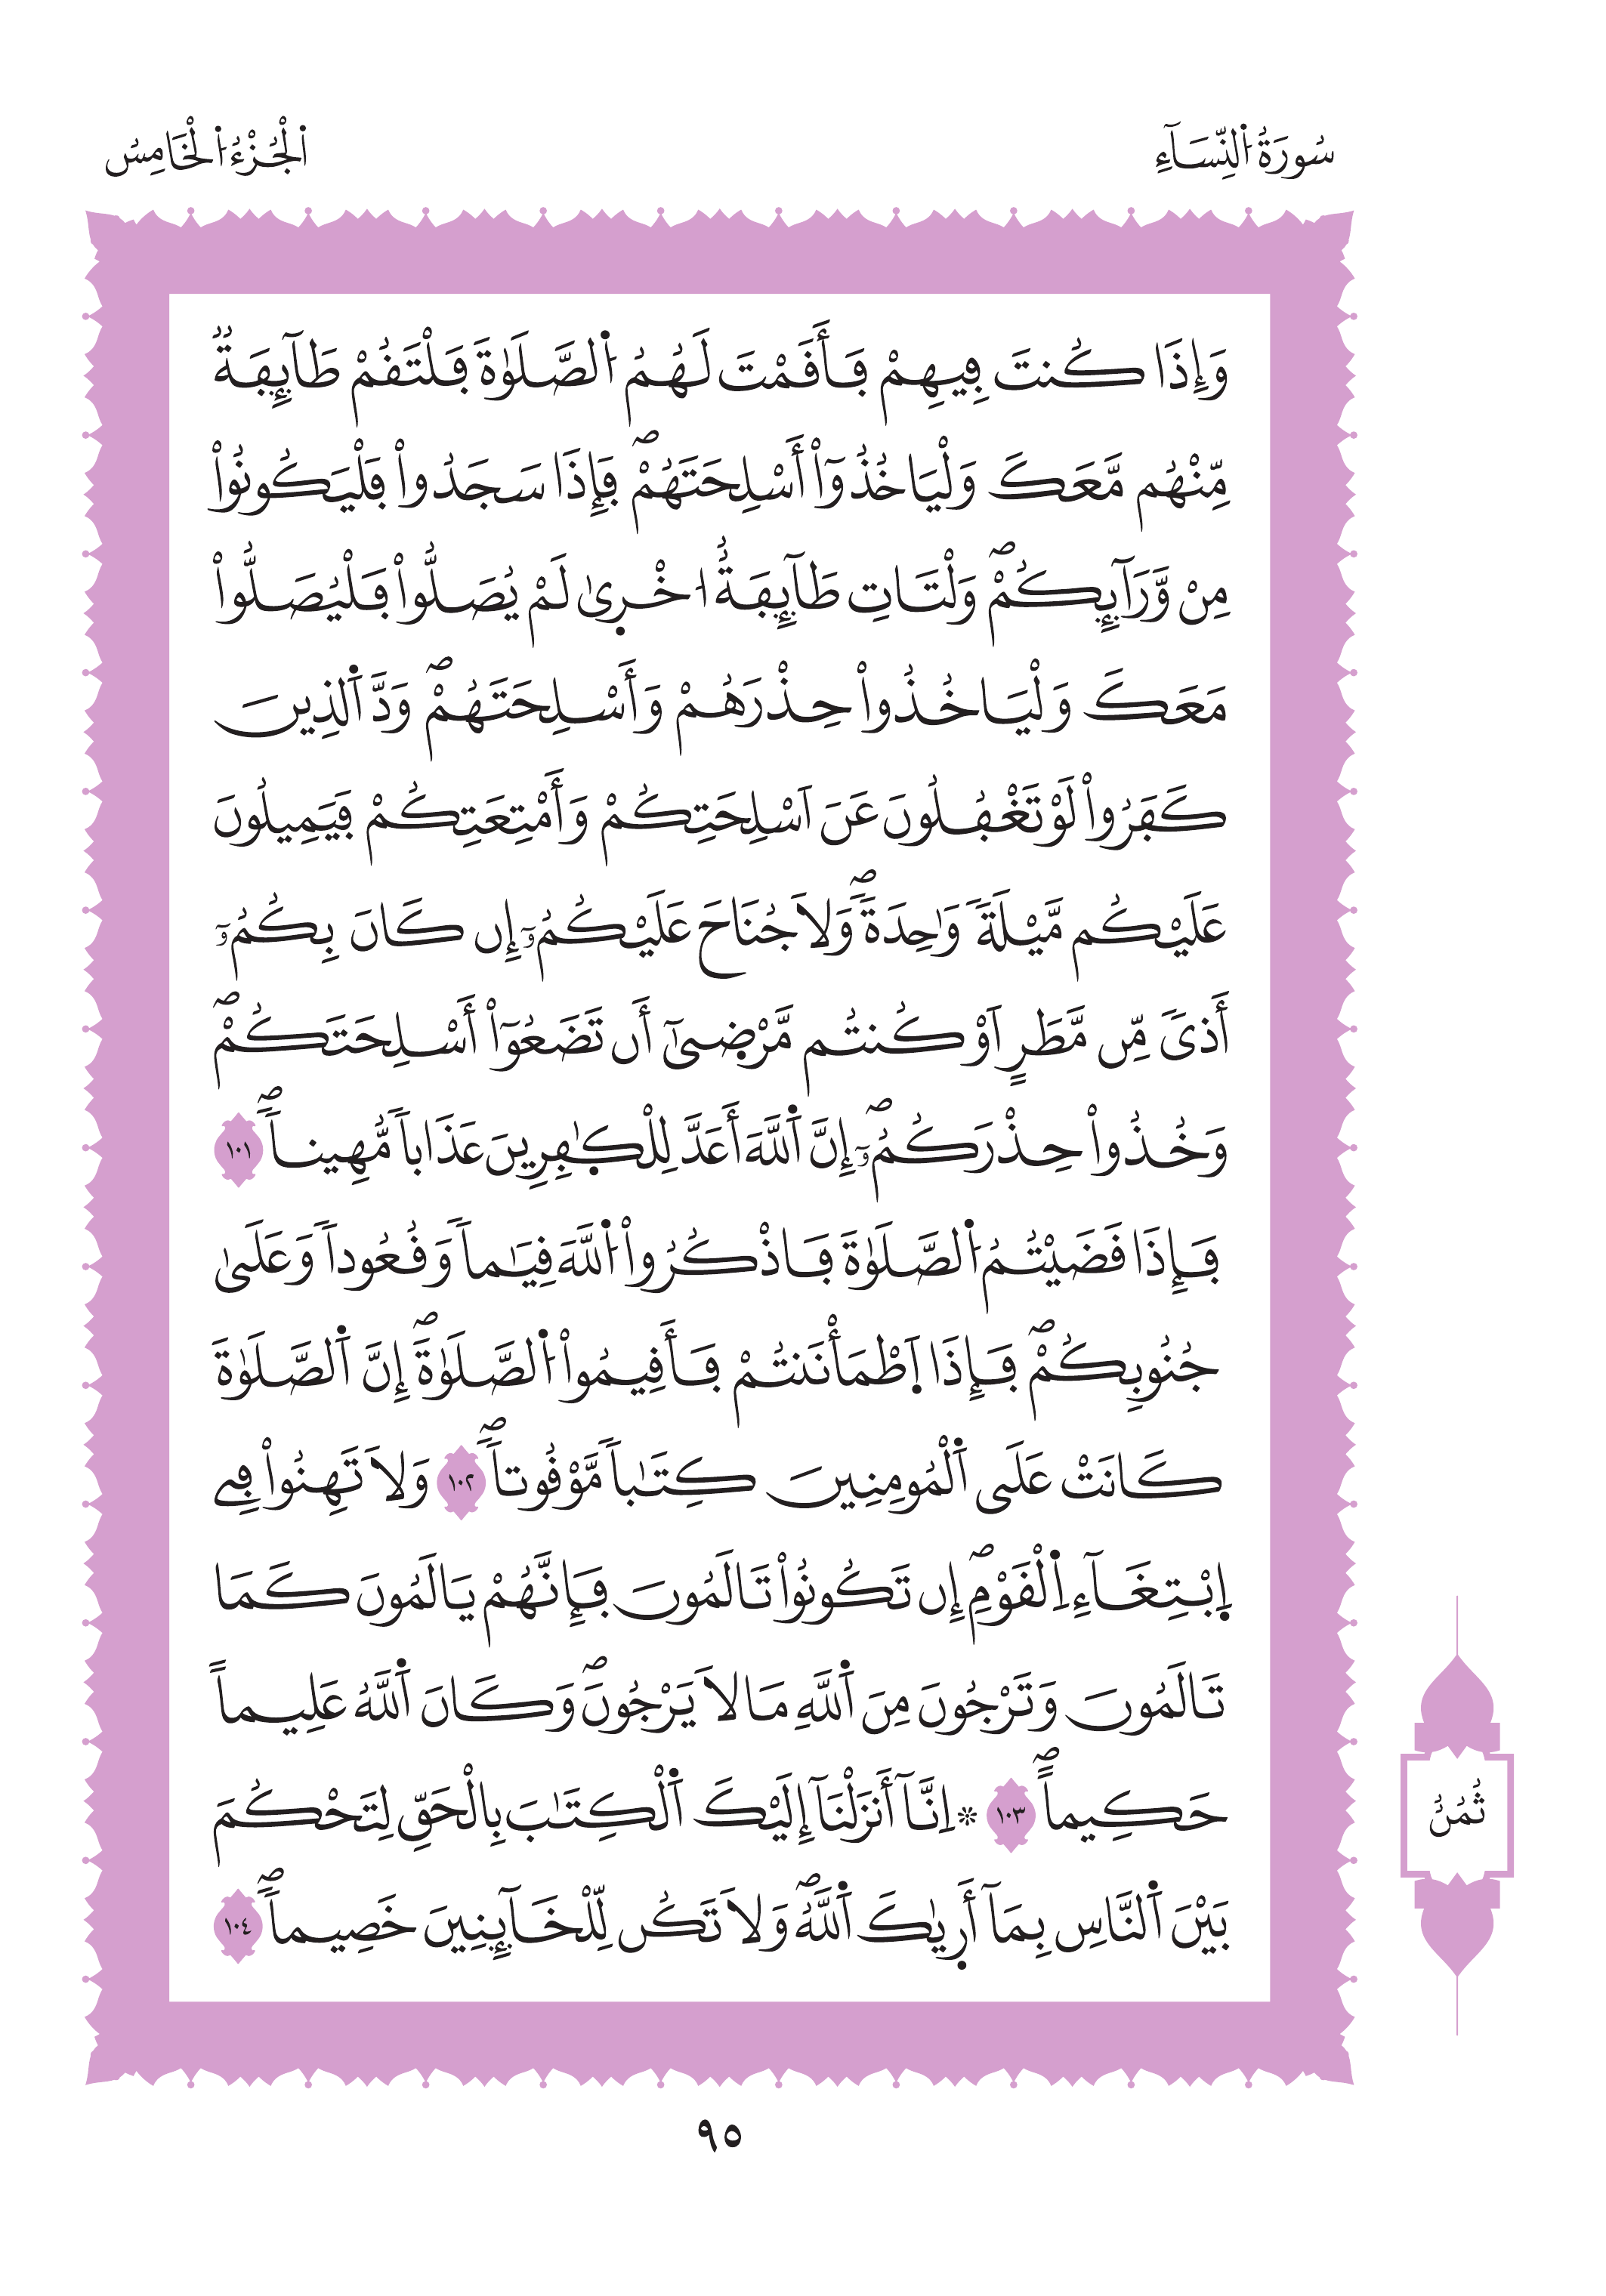 سُورَةُ اُ۬لنِّسَآءِ
اَ۬لْجُزْءُ اُ۬لْخَامِسُ
وَإِذَا كُنتَ فِيهِمْ فَأَقَمْتَ لَهُمُ اُ۬لصَّلَوٰةَ فَلْتَقُمْ طَآئِفَةٞ
مِّنْهُم مَّعَكَ وَلْيَاخُذُوٓاْ أَسْلِحَتَهُمْۖ فَإِذَا سَجَدُواْ فَلْيَكُونُواْ
مِنْ وَّرَآئِكُمْۖ وَلْتَاتِ طَآئِفَةٌ ا۟خْر۪يٰ لَمْ يُصَلُّواْ فَلْيُصَلُّواْ
مَعَكَ وَلْيَاخُذُواْ حِذْرَهُمْ وَأَسْلِحَتَهُمْۖ وَدَّ اَ۬لذِينَ
كَفَرُواْ لَوْ تَغْفُلُونَ عَنَ اَسْلِحَتِكُمْ وَأَمْتِعَتِكُمْ فَيَمِيلُونَ
عَلَيْكُم مَّيْلَةٗ وَٰحِدَةٗۖ وَلَا جُنَاحَ عَلَيْكُمُۥٓ إِن كَانَ بِكُمُۥٓ
أَذيٗ مِّن مَّطَرٍ اَوْ كُنتُم مَّرْض۪ىٰٓ أَن تَضَعُوٓاْ أَسْلِحَتَكُمْۖ
وَخُذُواْ حِذْرَكُمُۥٓۖ إِنَّ اَ۬للَّهَ أَعَدَّ لِلْكٰ۪فِرِينَ عَذَاباٗ مُّهِيناٗۖ ١٠١
فَإِذَا قَضَيْتُمُ اُ۬لصَّلَوٰةَ فَاذْكُرُواْ اُ۬للَّهَ قِيَٰماٗ وَقُعُوداٗ وَعَلَىٰ
جُنُوبِكُمْۖ فَإِذَا اَ۪طْمَأْنَنتُمْ فَأَقِيمُواْ اُ۬لصَّلَوٰةَۖ إِنَّ اَ۬لصَّلَوٰةَ
كَانَتْ عَلَى اَ۬لْمُومِنِينَ كِتَٰباٗ مَّوْقُوتاٗۖ ١٠٢ وَلَا تَهِنُواْ فِے
اِ۪بْتِغَآءِ اِ۬لْقَوْمِۖ إِن تَكُونُواْ تَالَمُونَ فَإِنَّهُمْ يَالَمُونَ كَمَا
تَالَمُونَ وَتَرْجُونَ مِنَ اَ۬للَّهِ مَا لَا يَرْجُونَۖ وَكَانَ اَ۬للَّهُ عَلِيماً
حَكِيماًۖ ١٠٣ ۞ اِنَّآ أَنزَلْنَآ إِلَيْكَ اَ۬لْكِتَٰبَ بِالْحَقِّ لِتَحْكُمَ
بَيْنَ اَ۬لنَّاسِ بِمَآ أَر۪يٰكَ اَ۬للَّهُۖ وَلَا تَكُن لِّلْخَآئِنِينَ خَصِيماٗۖ ١٠٤
ثُمُنٌ
٩٥